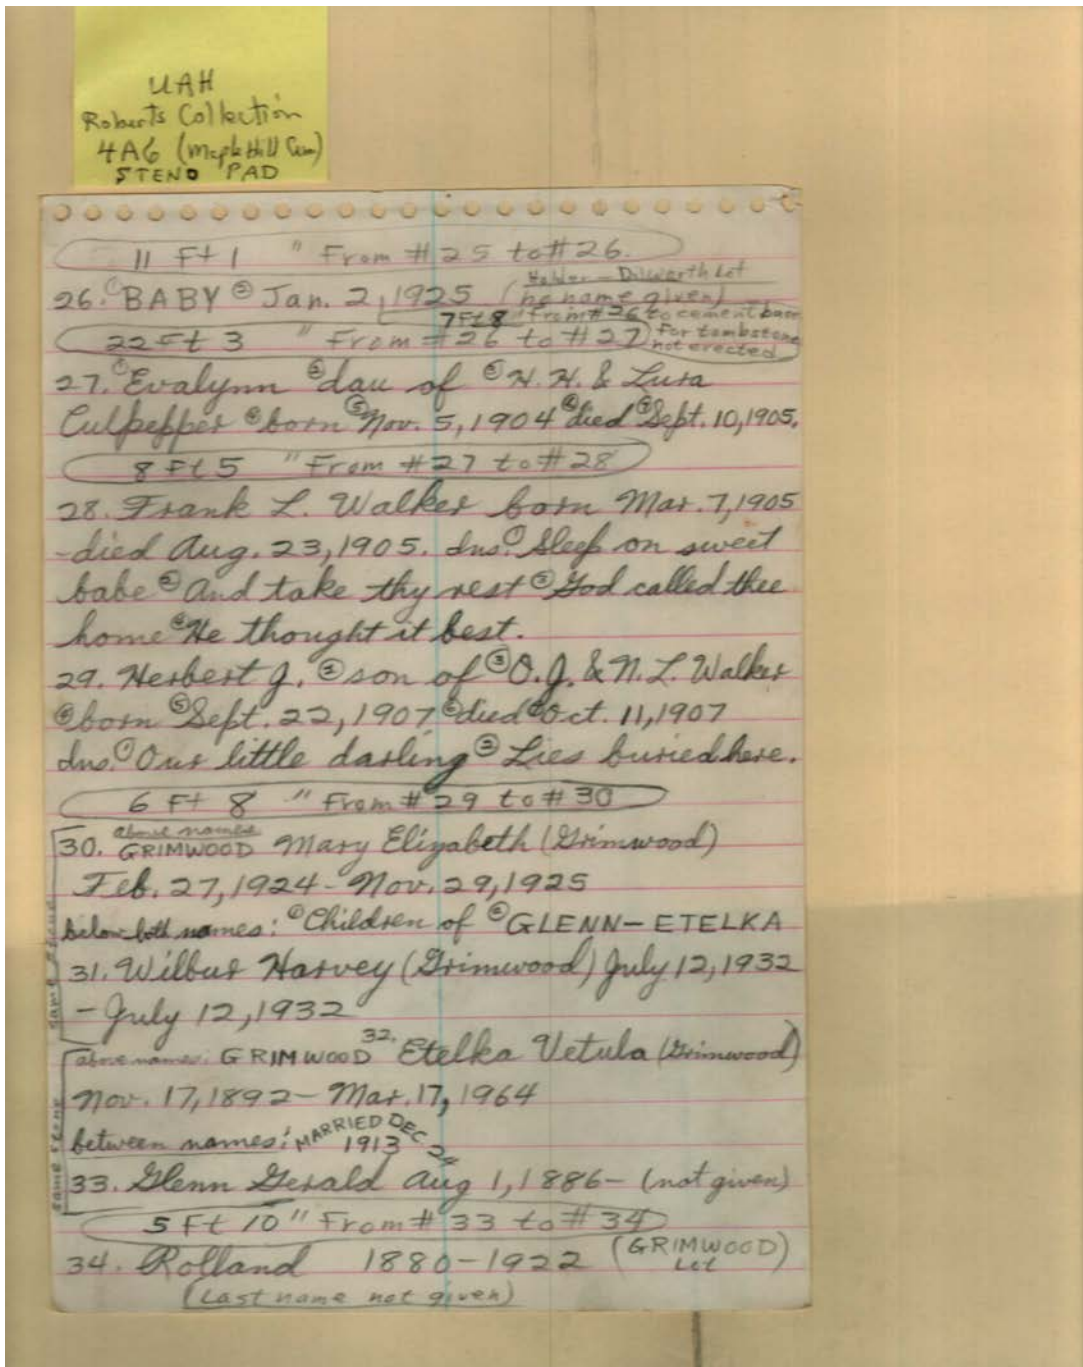 UAH
Roberts Collection
4A6 (Maple Hill Cem)
STENO PAD
11 Ft 1 " From #25 to #26.
26. ① BABY ② Jan. 2, 1925 (no name given)
Holder - Dilworth Lot
7 Ft 8 " From #26 to cement base
for tombstone
not erected
22 Ft 3 " From #26 to #27
27. ① Evalynn ② dau of ③ H. H. & Lura
Culpepper ④ born ⑤ Nov. 5, 1904 ⑥ died ⑦ Sept. 10, 1905.
8 Ft 5 " From #27 to #28
28. Frank L. Walker born Mar. 7, 1905
-died Aug. 23, 1905. Ins. ① Sleep on sweet
babe ② And take thy rest ③ God called thee
home ④ He thought it best.
29. Herbert J. ② son of ③ O. J. & N. L. Walker
④ born ⑤ Sept. 22, 1907 ⑥ died ⑦ Oct. 11, 1907
Ins. ① Our little darling ② Lies buried here.
6 Ft 8 " From #29 to #30
above names
30. GRIMWOOD Mary Elizabeth (Grimwood)
Feb. 27, 1924 - Nov. 29, 1925
below both names: ① Children of ② GLENN - ETELKA
31. Wilbur Harvey (Grimwood) July 12, 1932
- July 12, 1932
same stone
above names: GRIMWOOD 32. Etelka Vetula (Grimwood)
Nov. 17, 1892 - Mar. 17, 1964
between names: MARRIED DEC 24
1913
33. Glenn Gerald Aug 1, 1886 - (not given)
same stone
5 Ft 10 " From #33 to #34
34. Rolland 1880-1922 (GRIMWOOD)
Lot
(Last name not given)